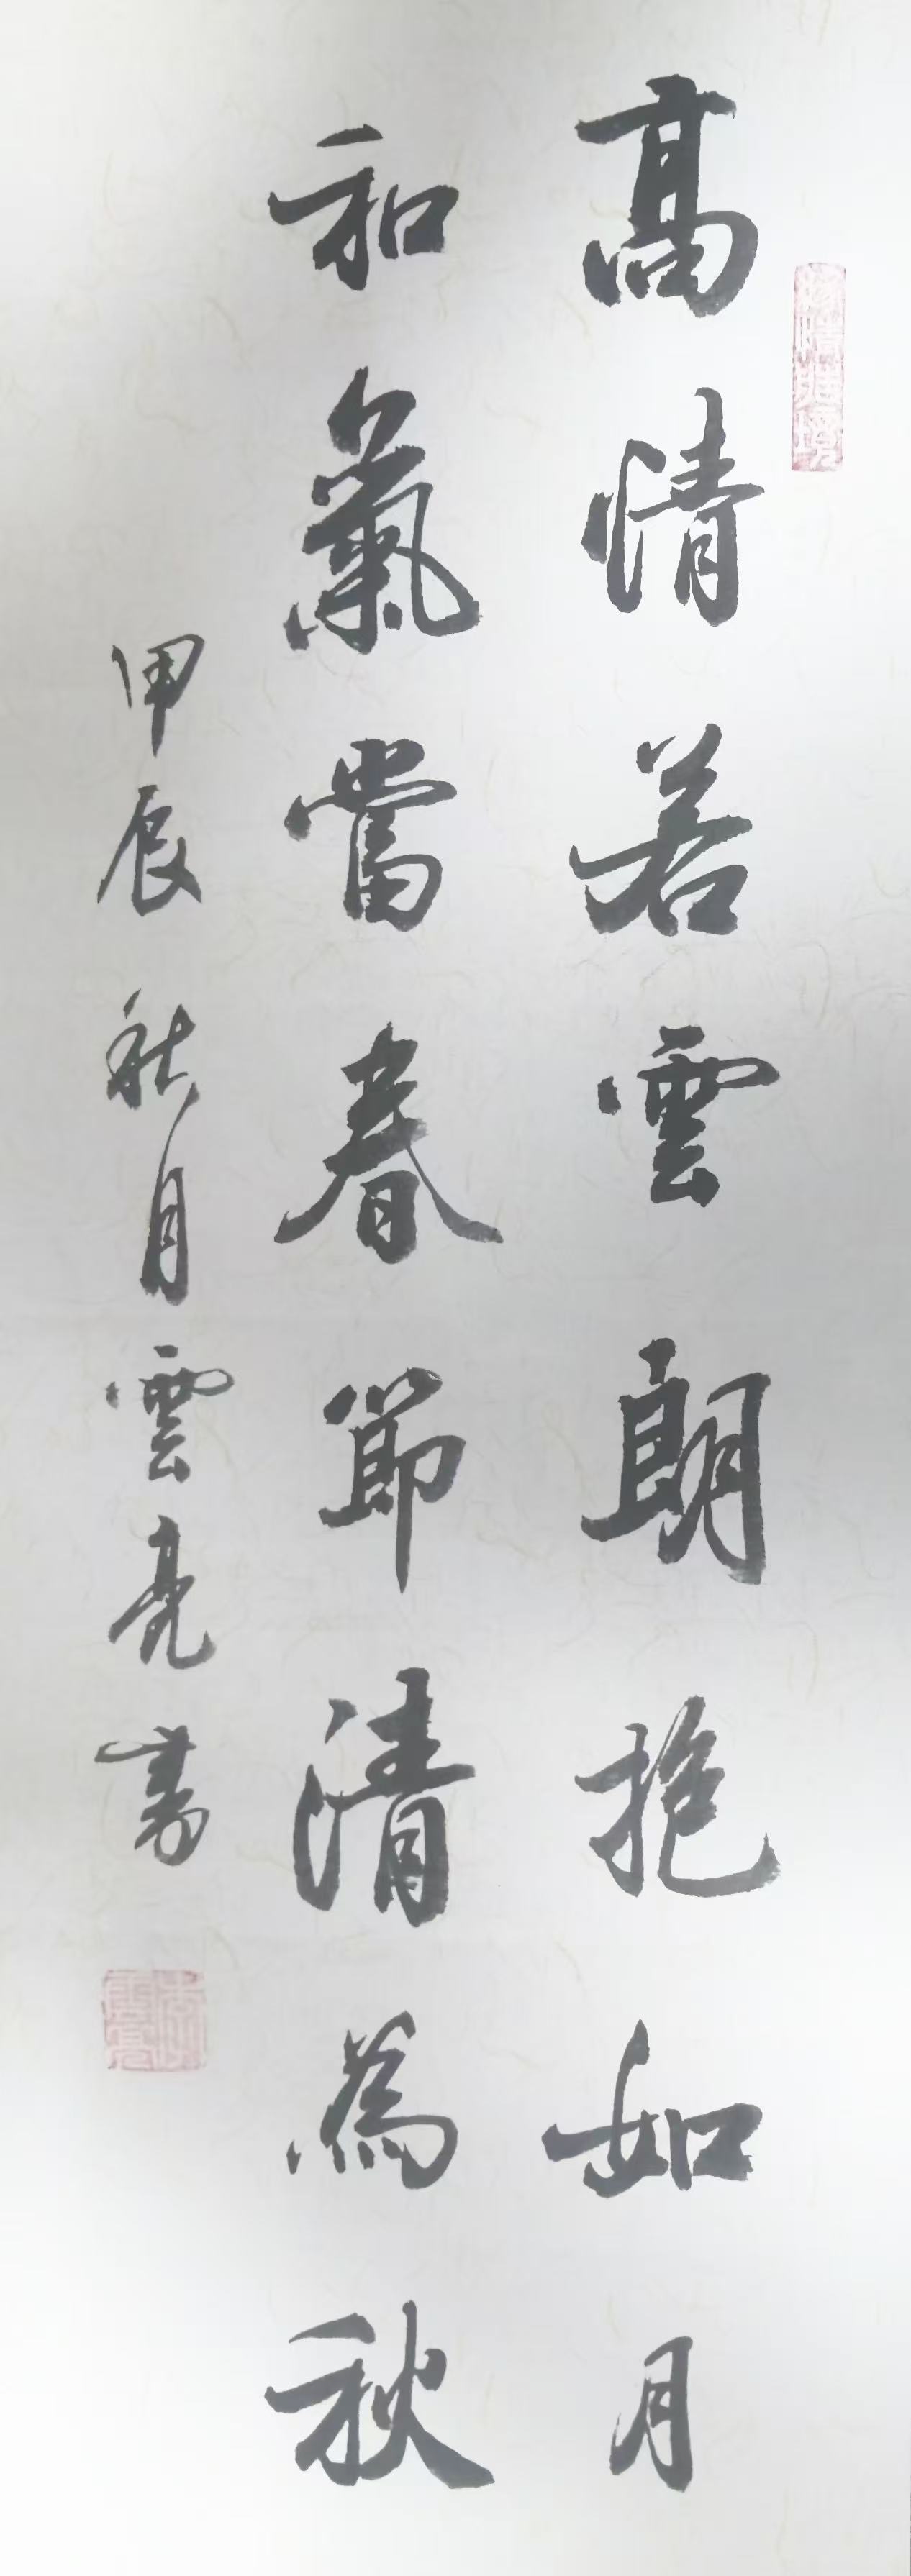 高情若雲朗抱如月
和氣當春節清為秋
甲辰秋月雲亮書